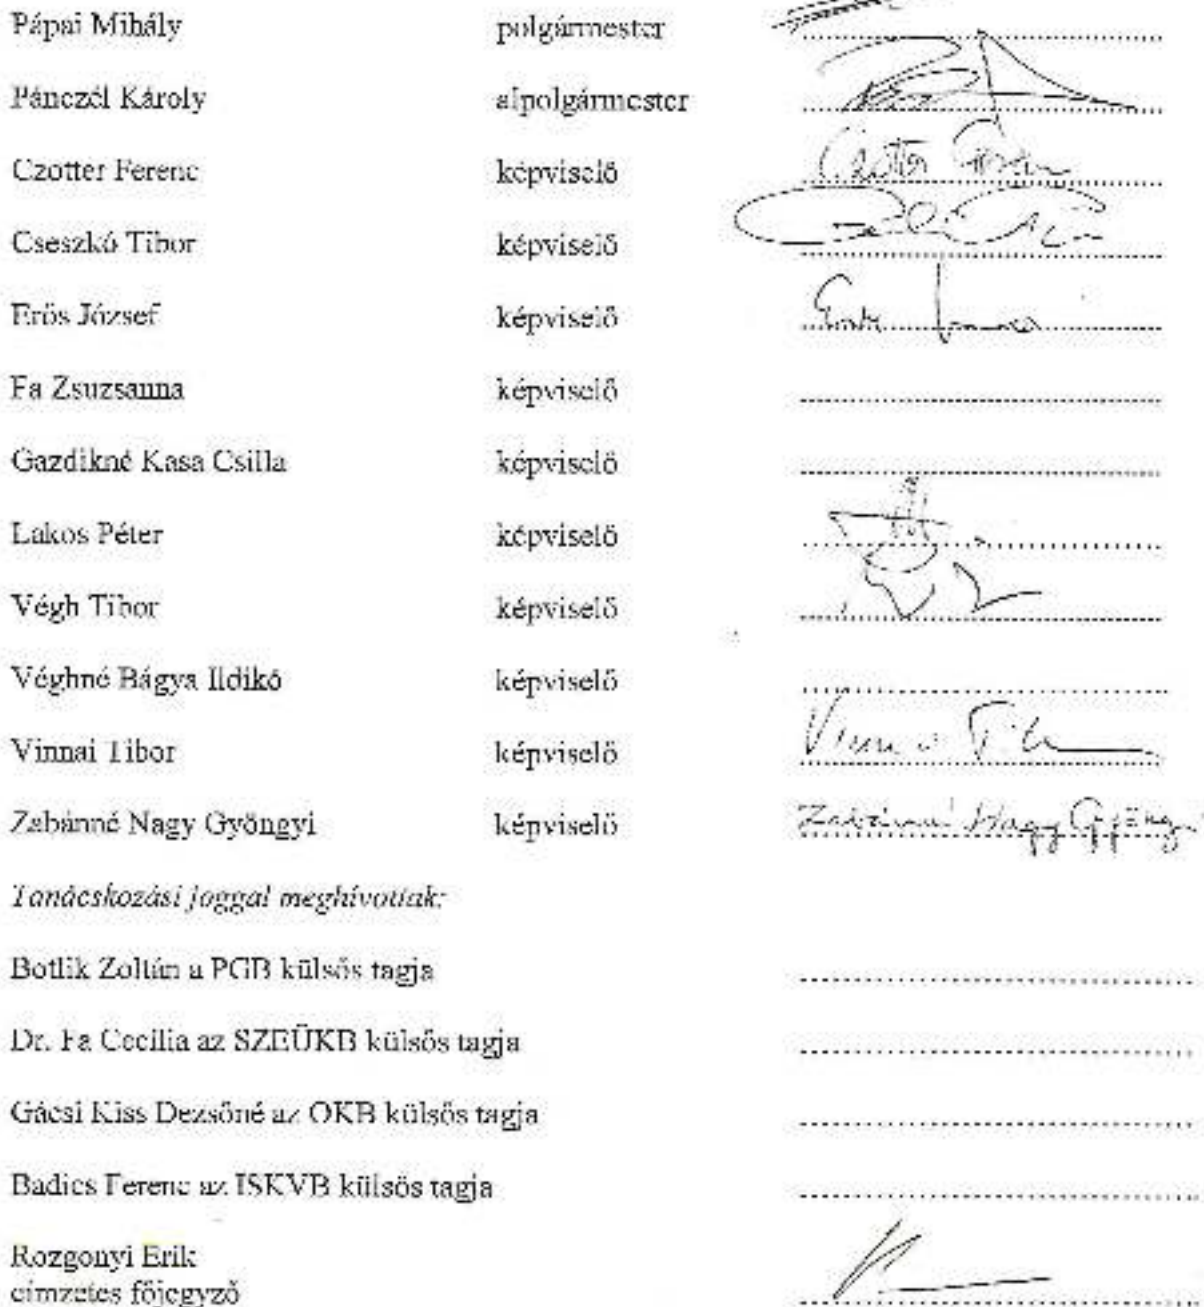 Pápai Mihály polgármester
Pánczél Károly alpolgármester
Czotter Ferenc képviselő Czotter Ferenc
Cseszkó Tibor képviselő
Erős József képviselő
Fa Zsuzsanna képviselő
Gazdikné Kasa Csilla képviselő
Lakos Péter képviselő
Végh Tibor képviselő
Véghné Bágya Ildikó képviselő
Vinnai Tibor képviselő
Zabánné Nagy Gyöngyi képviselő Zabánné Nagy Gyöngyi
Tanácskozási joggal meghívottak:
Botlik Zoltán a PGB külsős tagja
Dr. Fa Cecília az SZEÜKB külsős tagja
Gácsi Kiss Dezsőné az OKB külsős tagja
Badics Ferenc az ISKVB külsős tagja
Rozgonyi Erik
címzetes főjegyző